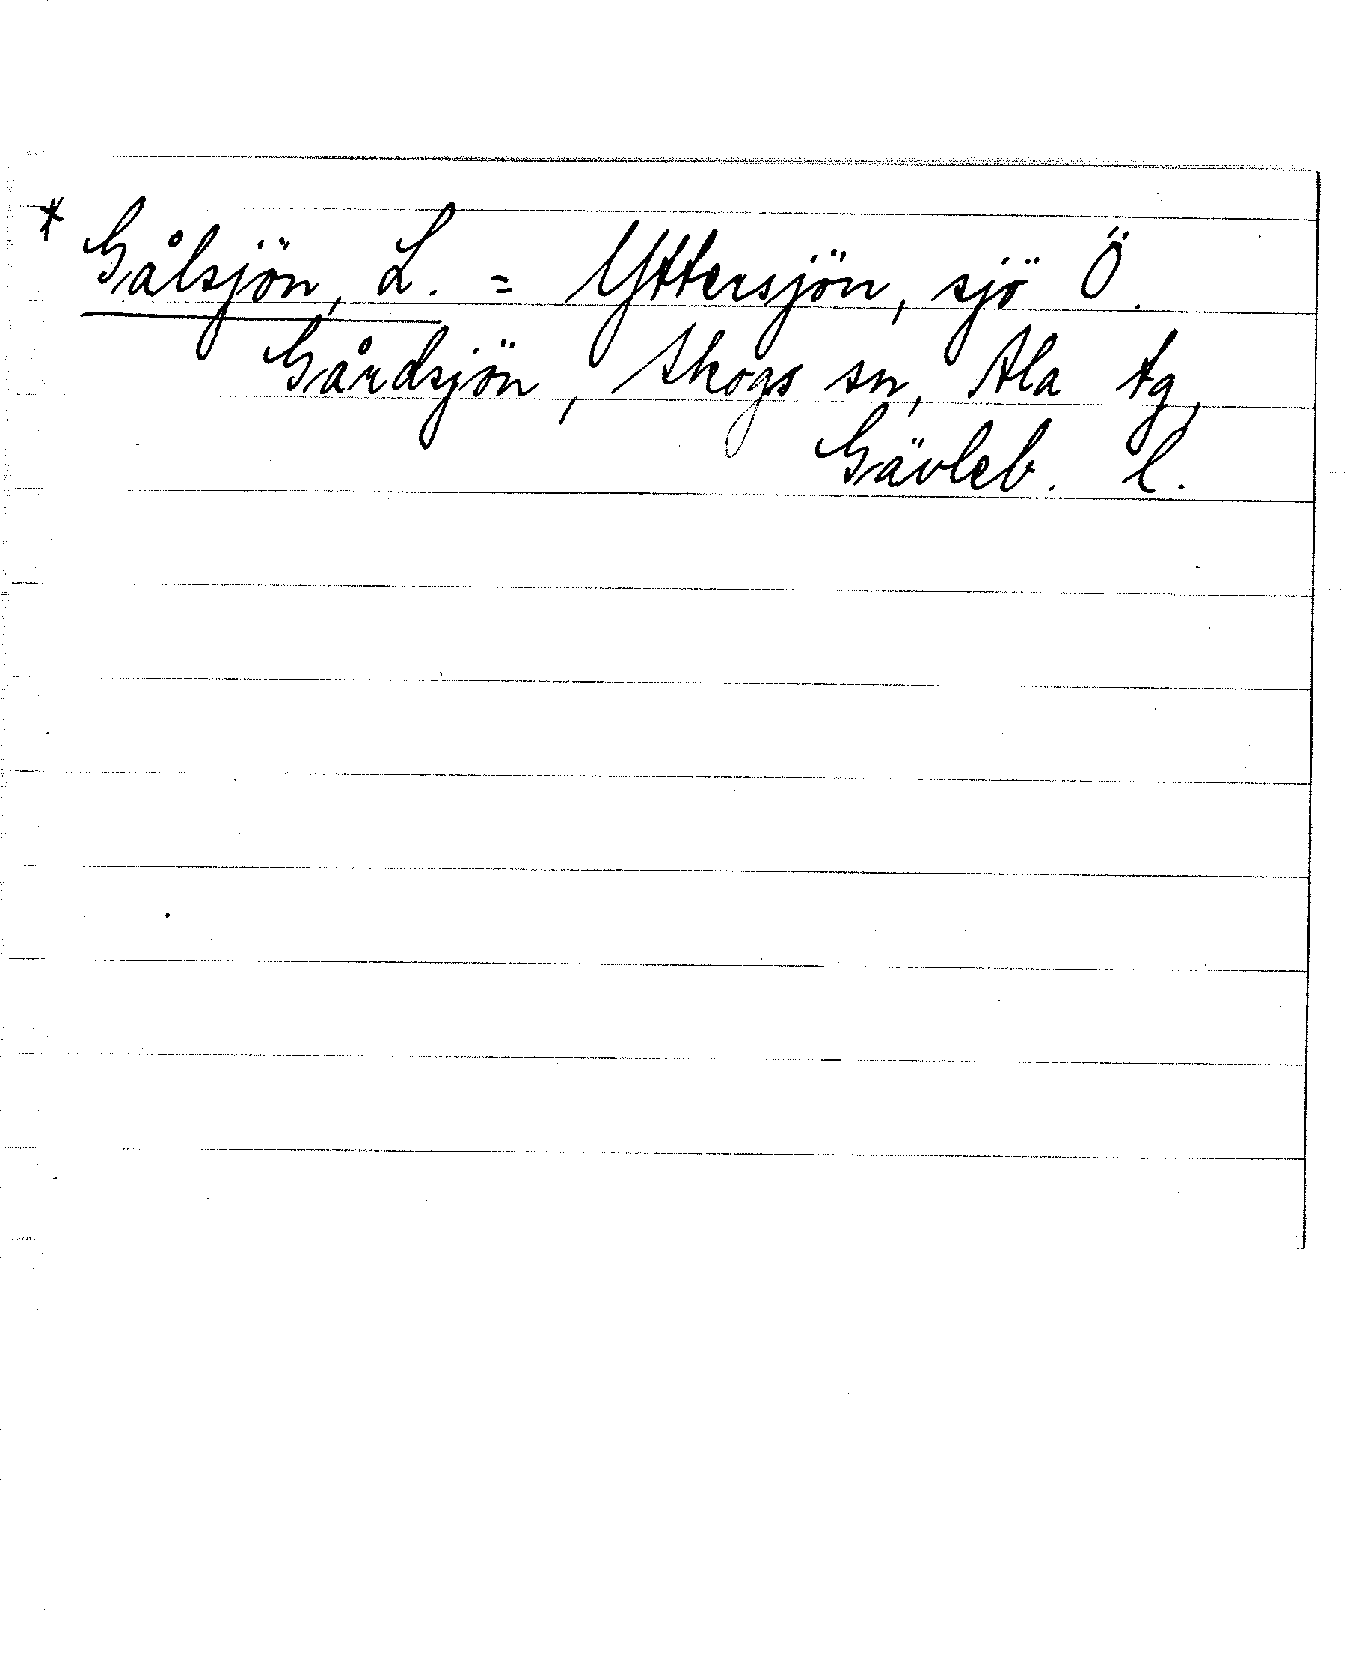 * Gålsjön, L. = Yttersjön, sjö Ö.
Gårdsjön, Skogs sn, Ala tg,
Gävleb. l.